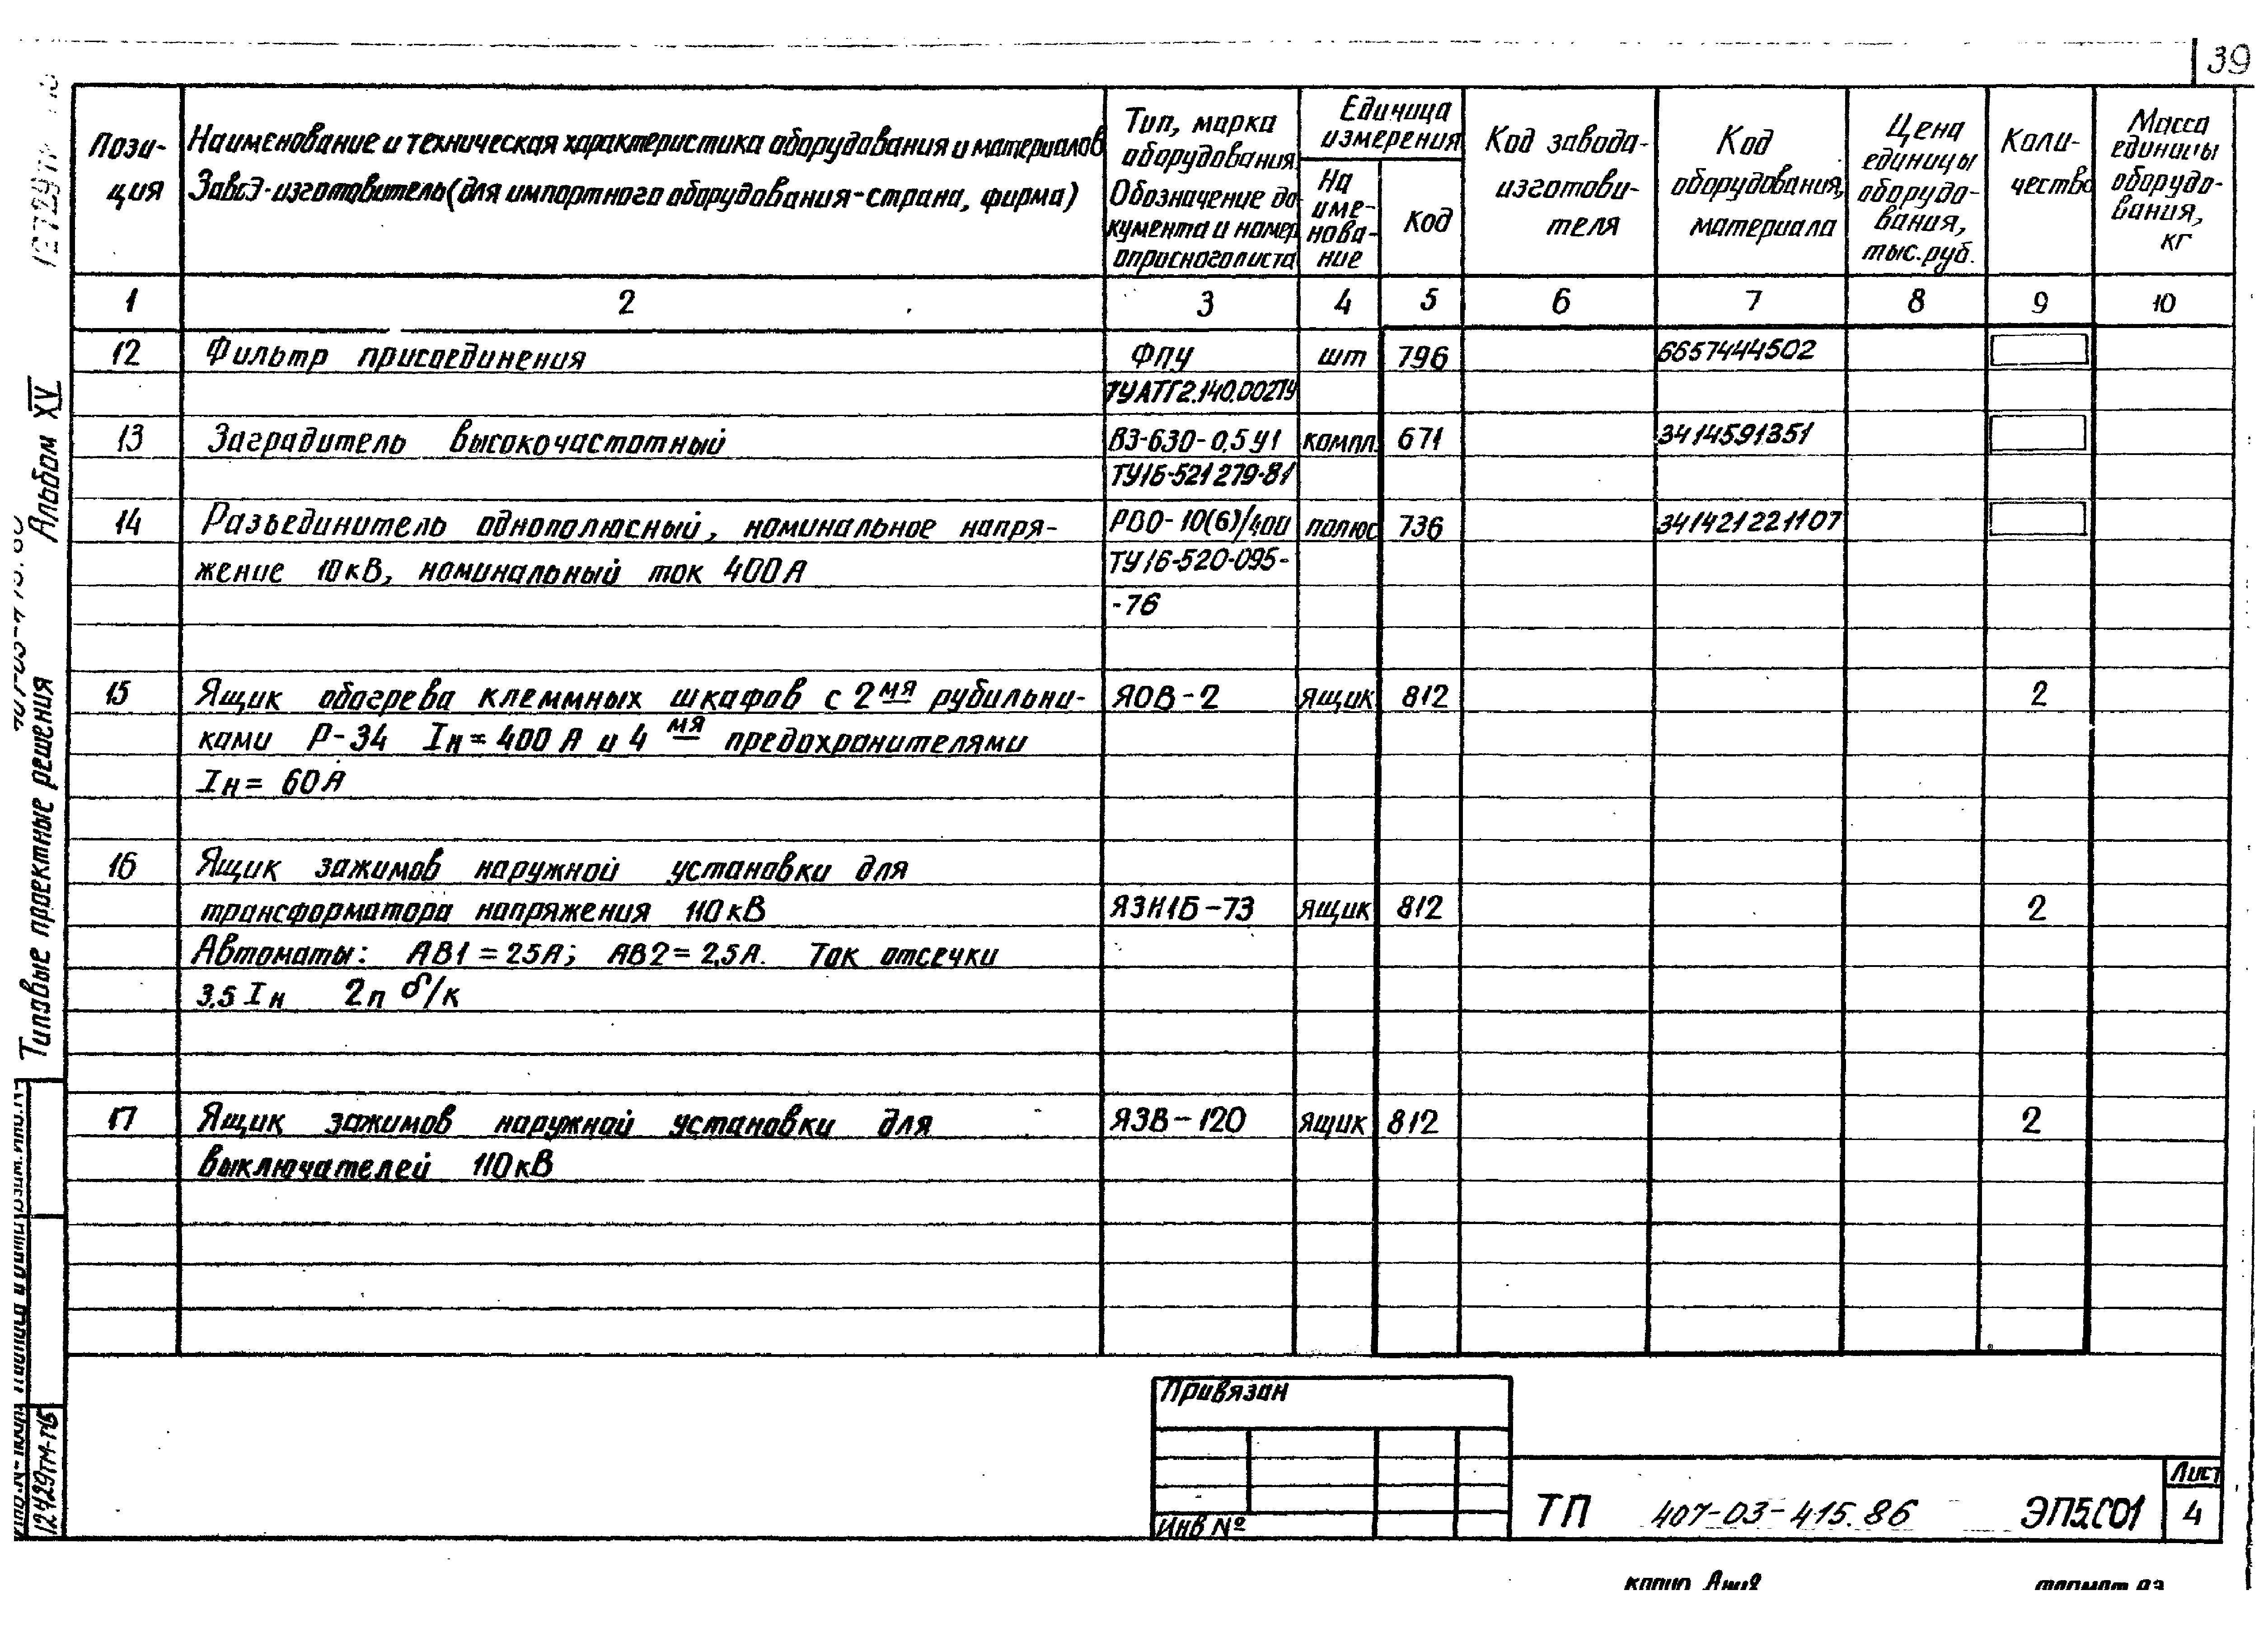 39
Пози-
ция
Наименование и техническая характеристика оборудования и материалов
Завод-изготовитель (для импортного оборудования-страна, фирма)
Тип, марка
оборудования.
Обозначение до-
кумента и номер
опросного листа
Единица
измерения
На
име-
нова-
ние
Код
Код завода-
изготови-
теля
Код
оборудования,
материала
Цена
единицы
оборудо-
вания,
тыс. руб.
Коли-
чество
Масса
единицы
оборудо-
вания,
кг
1 2 3 4 5 6 7 8 9 10
12 Фильтр присоединения ФПУ шт 796 6657444502
ТУАТГ2.140.002ТУ
13 Заградитель высокочастотный ВЗ-630-0,5У1 компл. 671 3414591351
ТУ16-521 279-81
14 Разъединитель однополюсный, номинальное напря- РВО-10(6)/400 полюс 736 341421221107
жение 10кВ, номинальный ток 400А ТУ16-520-095-
-76
15 Ящик обогрева клеммных шкафов с 2мя рубильни- ЯОВ-2 ящик 812 2
ками Р-34 Iн=400 А и 4 мя предохранителями
Iн= 60А
16 Ящик зажимов наружной установки для
трансформатора напряжения 110кВ ЯЗН1Б-73 ящик 812 2
Автоматы: АВ1=25А; АВ2=2,5А. Ток отсечки
3,5 Iн 2п б/к
17 Ящик зажимов наружной установки для ЯЗВ-120 ящик 812 2
выключателей 110кВ
Альбом XV
Типовые проектные решения
12429тм-т15
Привязан
Инв №
ТП 407-03-415.86 ЭП5.С01
Лист
4